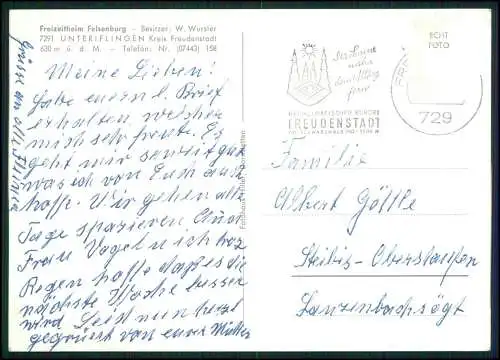 Freizeitheim Felsenburg - Besitzer: W. Wurster
7291 UNTERIFLINGEN Kreis Freudenstadt
630 m ü. d. M. - Telefon: Nr. (07443) 158
Meine Lieben!
Habe euern l. Brief
erhalten, welcher
mich sehr freute. Es
geht mir soweit gut
was ich von Euch auch
hoffe. Wir gehen alle
Tage spazieren
Frau Vogel
Regen hoffe daß es die
nächste Woche besser
wird Seid nun herzl
gegrüsst von eurer Mutter
Grüsse an alle
ECHT
FOTO
HEILKLIMATISCHER KURORT
FREUDENSTADT
729
Familie
Albert Göttle
Steibis-Oberstaufen
Lanzenbachsögt